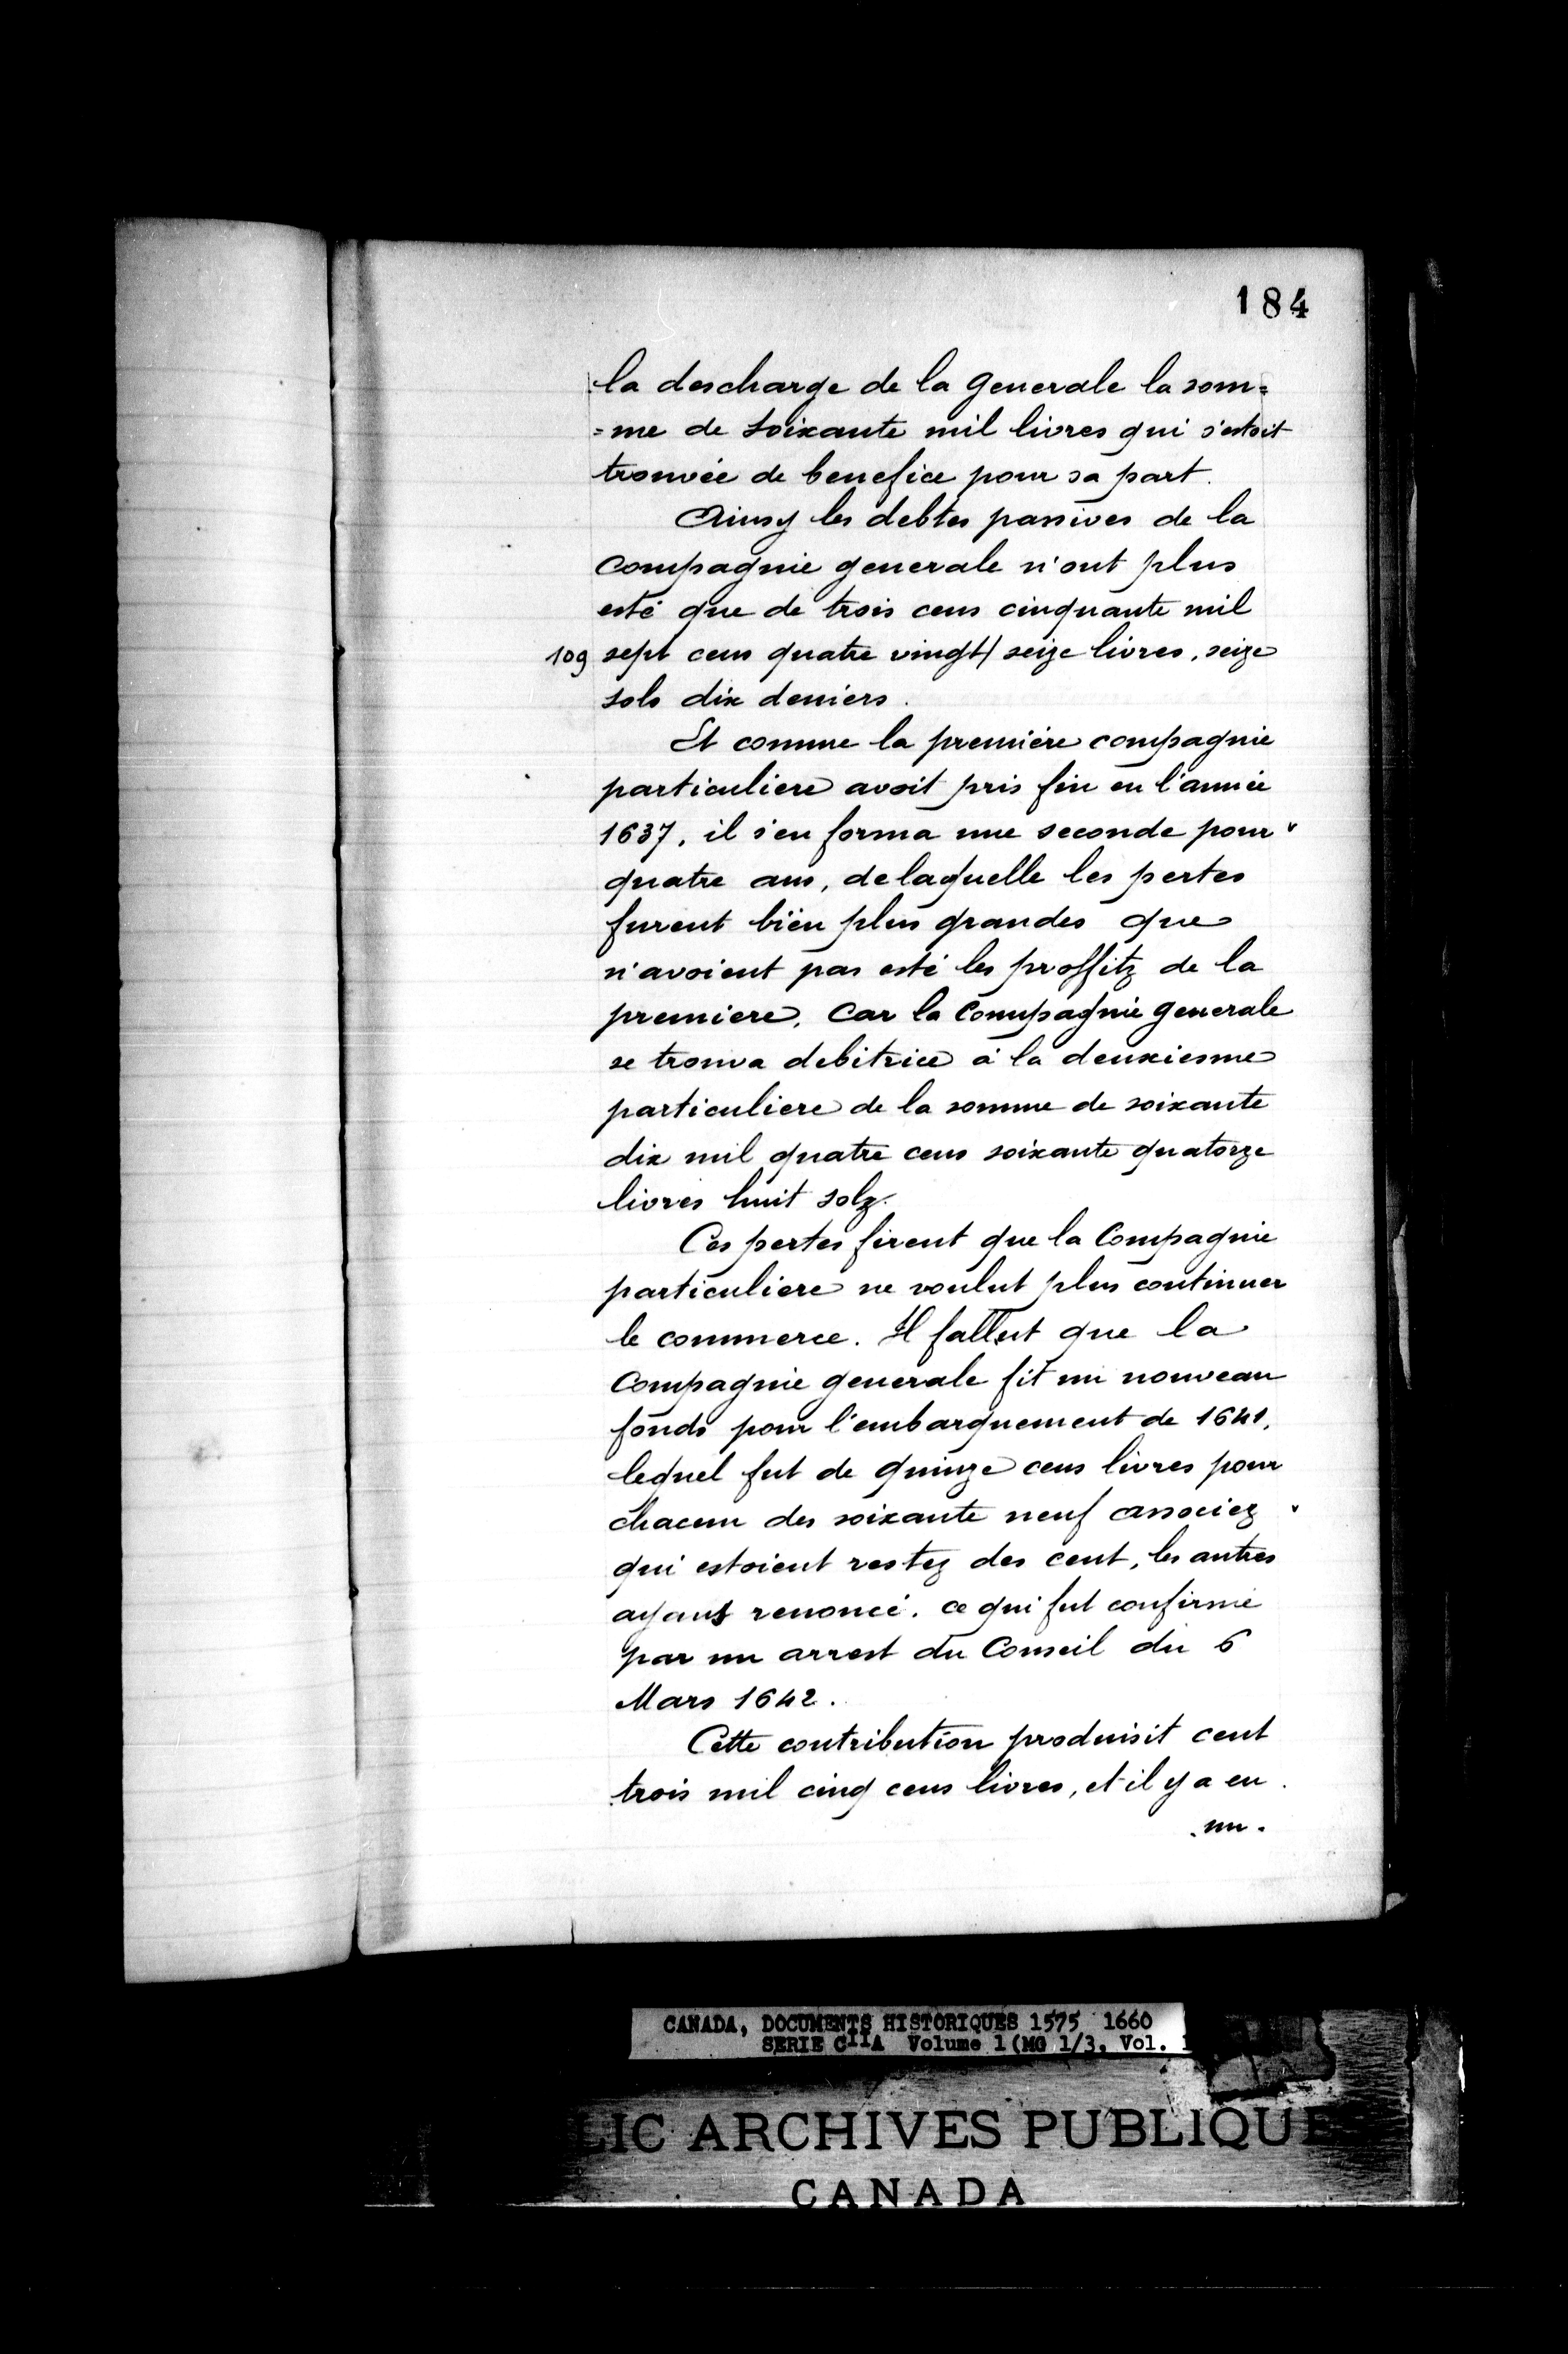 184
la descharge de la generale la som=
=me de soixante mil livres qui s'estoit
trouvée de benefice pour sa part.
Ainsy les debtes passives de la
compagnie generale n'ont plus
esté que de trois cens cinquante mil
109 sept cens quatre vingt/ seize livres, seize
sols dix deniers.
Et comme la premiére compagnie
particuliere avoit pris fin en l'année
1637, il s'en forma une seconde pour
quatre ans, de laquelle les pertes
furent bien plus grandes que
n'avoient pas esté les proffitz de la
premiere, car la Compagnie generale
se trouva debitrice à la deuxiesme
particuliere de la somme de soixante
dix mil quatre cens soixante quatorze
livres huit solz.
Ces pertes firent que la Compagnie
particuliere ne voulut plus continuer
le commerce. Il fallut que la
Compagnie generale fit un nouveau
fonds pour l'embarquement de 1641,
lequel fut de quinze cens livres pour
chacun des soixante neuf associez
qui estoient restez des cent, les autres
ayant renoncé. ce qui fut confirmé
par un arrest du Conseil du 6
Mars 1642.
Cette contribution produisit cent
trois mil cinq cens livres, et il y a eu
un.
CANADA, DOCUMENTS HISTORIQUES 1575 1660
SERIE CIIA Volume 1 (MG 1/3, Vol. 1
LIC ARCHIVES PUBLIQUE
CANADA